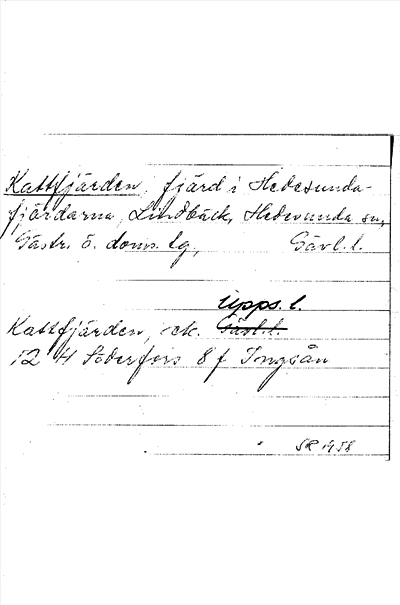 Kattfjärden, fjärd i Hedesunda-
fjärdarna, Lindbäck, Hedesunda sn,
Gästr. ö. doms. lg, Gävl. l.
Upps. l.
Kattfjärden, ek. Gävl. l.
12 H Söderfors 8 f Ingsån
SR 1958